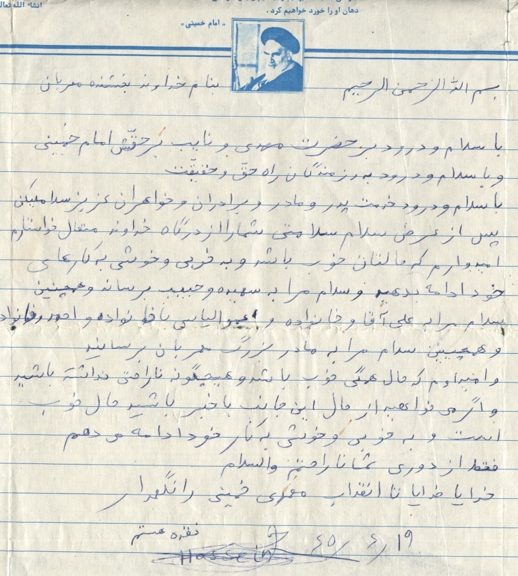 انشاء الله تعالی
دهان او را خورد خواهیم کرد.
- امام خمینی -
بسم الله الرحمن الرحیم بنام خداوند بخشنده مهربان
با سلام و درود بر حضرت مهدی و نایب بر حقش امام خمینی
و با سلام و درود به رزمندگان راه حق و حقیقت
با سلام و درود خدمت پدر و مادر و برادران و خواهران عزیز سلام علیکن
پس از عرض سلام سلامتی شما را از درگاه خداوند متعال خواستارم
امیدوارم که حالتان خوب باشد و به خوبی و خوشی به کارهای
خود ادامه بدهید و سلام مرا به سهیده و حبیب برساند و همچنین
سلام مرا به علی آقا و خانواده و الیاسی با خانواده و احمد
و همچنین سلام مرا به مادر بزرگ مهربان برسانید
و امیدوارم که حال همگی خوب باشد و هیچگونه ناراحتی نداشته باشید
و اگر می خواهید از حال این جانب با خبر باشید حال خوب
است و به خوبی و خوشی به کار خود ادامه می دهم
فقط از دوری شما ناراحتم والسلام
خدایا خدایا تا انقلاب مهدی خمینی را نگهدار
۶۵/۶/۱۹
Hossein